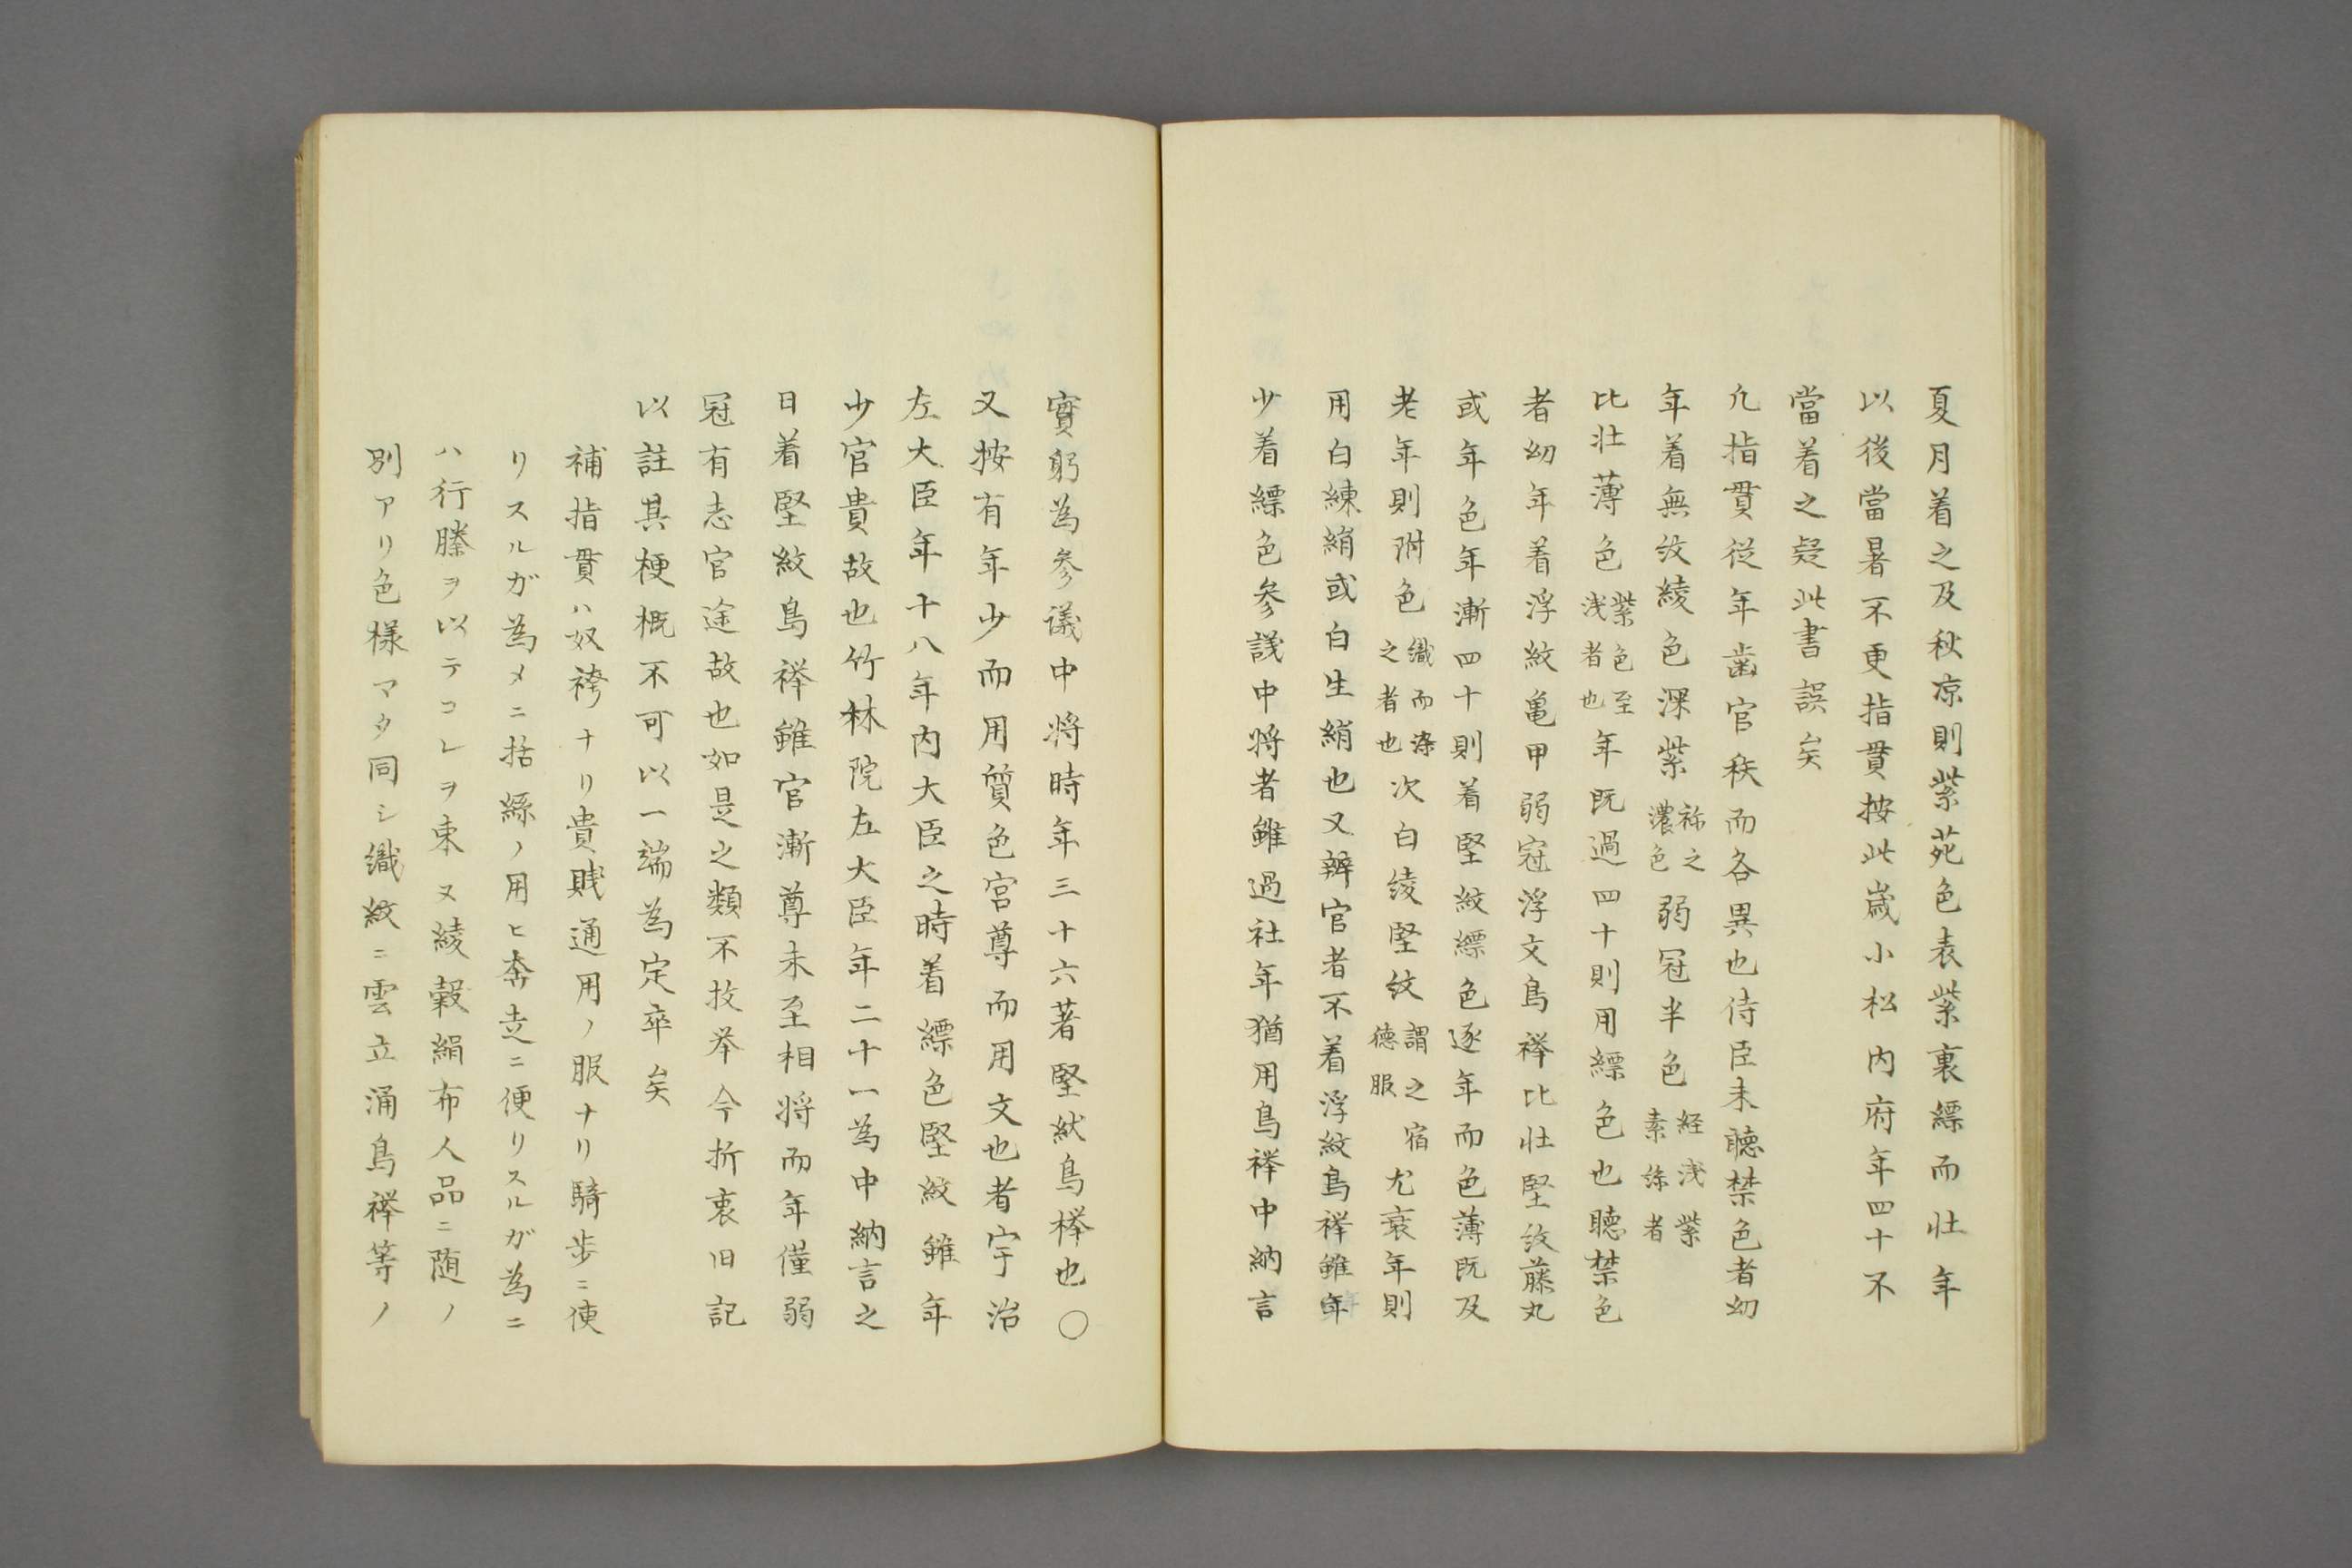 夏月着之及秋凉則紫苑色表紫裏縹而壮年
以後當暑不更指貫按此歳小松内府年四十不
當着之疑此書誤矣
凢指貫從年歯官秩而各異也侍臣未聴禁色者幼
年着無紋綾色深紫祢之濃色弱冠半色経浅紫素絲者
比壮薄色紫色至浅者也年既過四十則用縹色也聴禁色
者幼年着浮紋亀甲弱冠浮文鳥襷比壮堅紋藤丸
或年色年漸四十則着堅紋縹色逐年而色薄既及
老年則附色織而染之者也次白綾堅紋謂之宿德服尤衰年則
用白練絹或白生絹也又辨官者不着浮紋鳥襷雖年
少着縹色参議中将者雖過社年猶用鳥襷中納言
實躬為参議中将時年三十六著堅紋鳥襷也〇
又按有年少而用質色宮尊而用文也者宇治
左大臣年十八年内大臣之時着縹色堅紋雖年
少官貴故也竹林院左大臣年二十一為中納言之
日着堅紋鳥襷雖官漸尊未至相将而年僅弱
冠有志官途故也如是之類不枚举今折衷旧記
以註其梗概不可以一端為定卒矣
補指貫ハ奴袴ナリ貴賎通用ノ服ナリ騎歩ニ便
リスルガ為メニ括縣ノ用ヒ奔走ニ便リスルガ為ニ
ハ行縢ヲ以テコレヲ束ヌ綾縠絹布人品ニ随ノ
別アリ色様マタ同シ織紋ニ雲立涌鳥襷等ノ